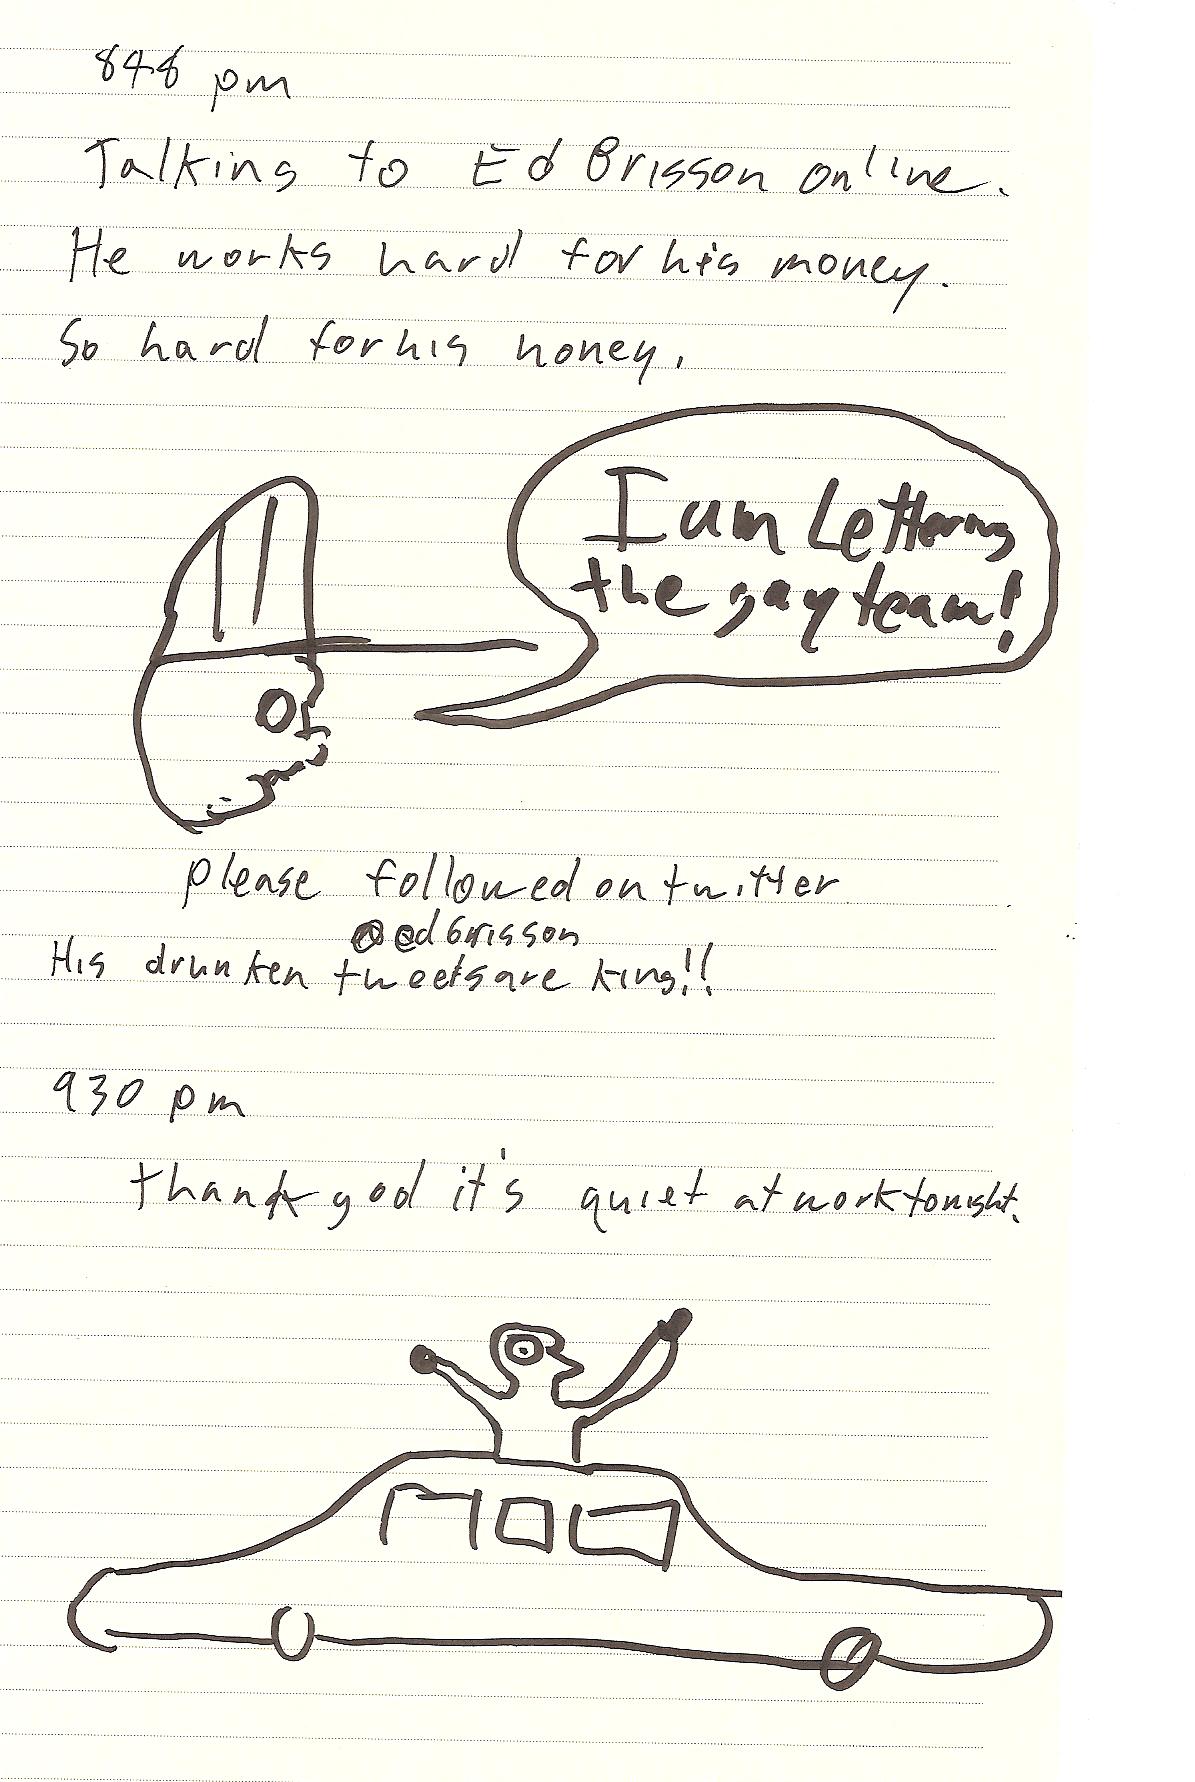 848 pm
Talking to Ed Brisson online.
He works hard for his money.
So hard for his honey.
I am Lettering
the gay team!
please followed on twitter
@edbrisson
His drunken tweets are king!!
930 pm
thank god it's quiet at work tonight.